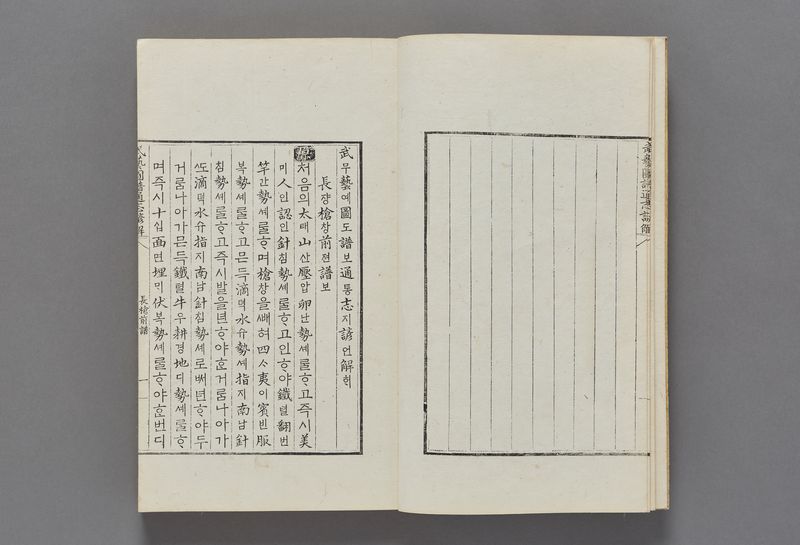 武藝圖譜通志諺解
武무藝예圖도譜보通통志지諺언解ᄒᆡ
長쟝槍창前젼譜보
처음의太태山산壓압卵난勢셰ᄅᆞᆯᄒᆞ고즉시美
미人인認인針침勢셰ᄅᆞᆯᄒᆞ고인ᄒᆞ야鐵텰翻번
竿간勢셰ᄅᆞᆯᄒᆞ며槍창을ᄲᅢ혀四ᄉᆞ夷이賓빈服
복勢셰ᄅᆞᆯᄒᆞ고믄득滴뎍水슈勢셰指지南남針
침勢셰ᄅᆞᆯᄒᆞ고즉시발을년ᄒᆞ야ᄒᆞᆫ거름나아가
ᄯᅩ滴뎍水슈指지南남針침勢셰로ᄡᅥ년ᄒᆞ야두
거름나아가믄득鐵텰牛우耕경地디勢셰ᄅᆞᆯᄒᆞ
며즉시十십面면埋ᄆᆡ伏복勢셰ᄅᆞᆯᄒᆞ야ᄒᆞᆫ번디
武藝圖譜通志諺解
長槍前譜
一